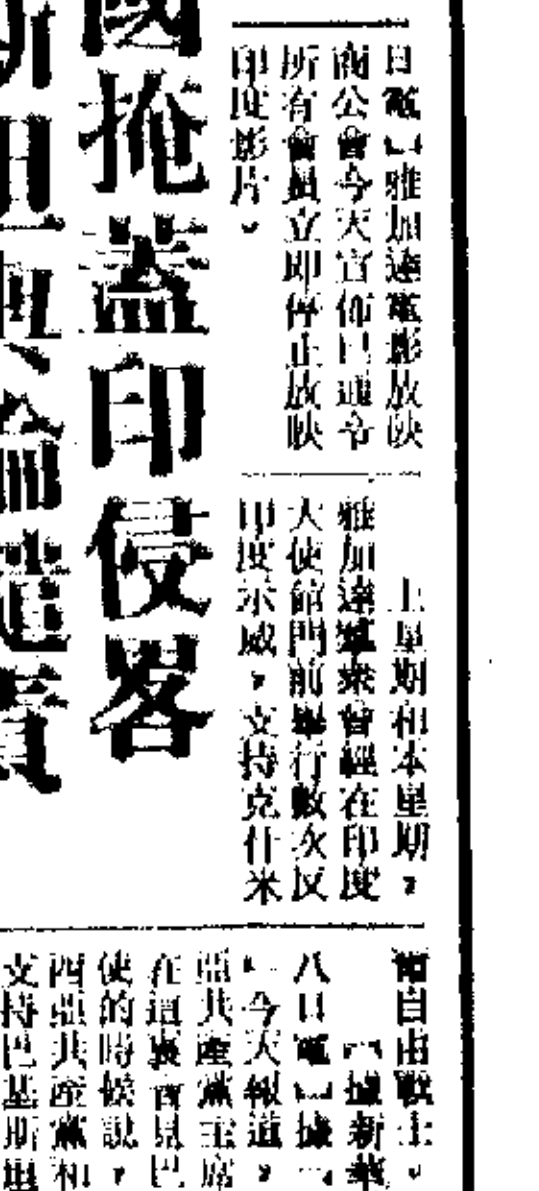 日電】雅加達電影放映
商公會今天宣佈已通令
所有會員立即停止放映
印度影片。
上星期和本星期，
雅加達羣衆曾經在印度
大使館門前舉行數次反
印度示威，支持克什米
爾自由戰士。
【據新華
八日電】據「
」今天報道，
亞共產黨主席
在這裏會見巴
使的時候說，
西亞共產黨和
支持巴基斯坦
國掩蓋印侵畧